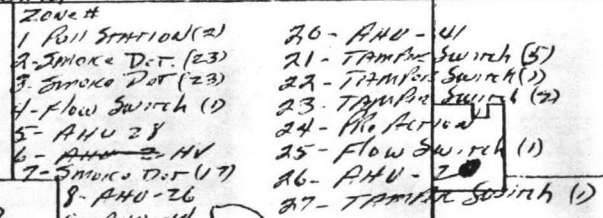 Zone #
1 Pull Station (2)
2-Smoke Det. (23)
3. Smoke Det (23)
4-Flow Switch (1)
5- AHU 28
6- AHU-2 HV
7-Smoke Det (17)
8- AHU-26
20- AHU-41
21- Tamper Switch (5)
22- Tamper Switch (1)
23- Tamper Switch (2)
24- Pre Action
25- Flow Switch (1)
26- AHU-2
27- Tamper Switch (1)